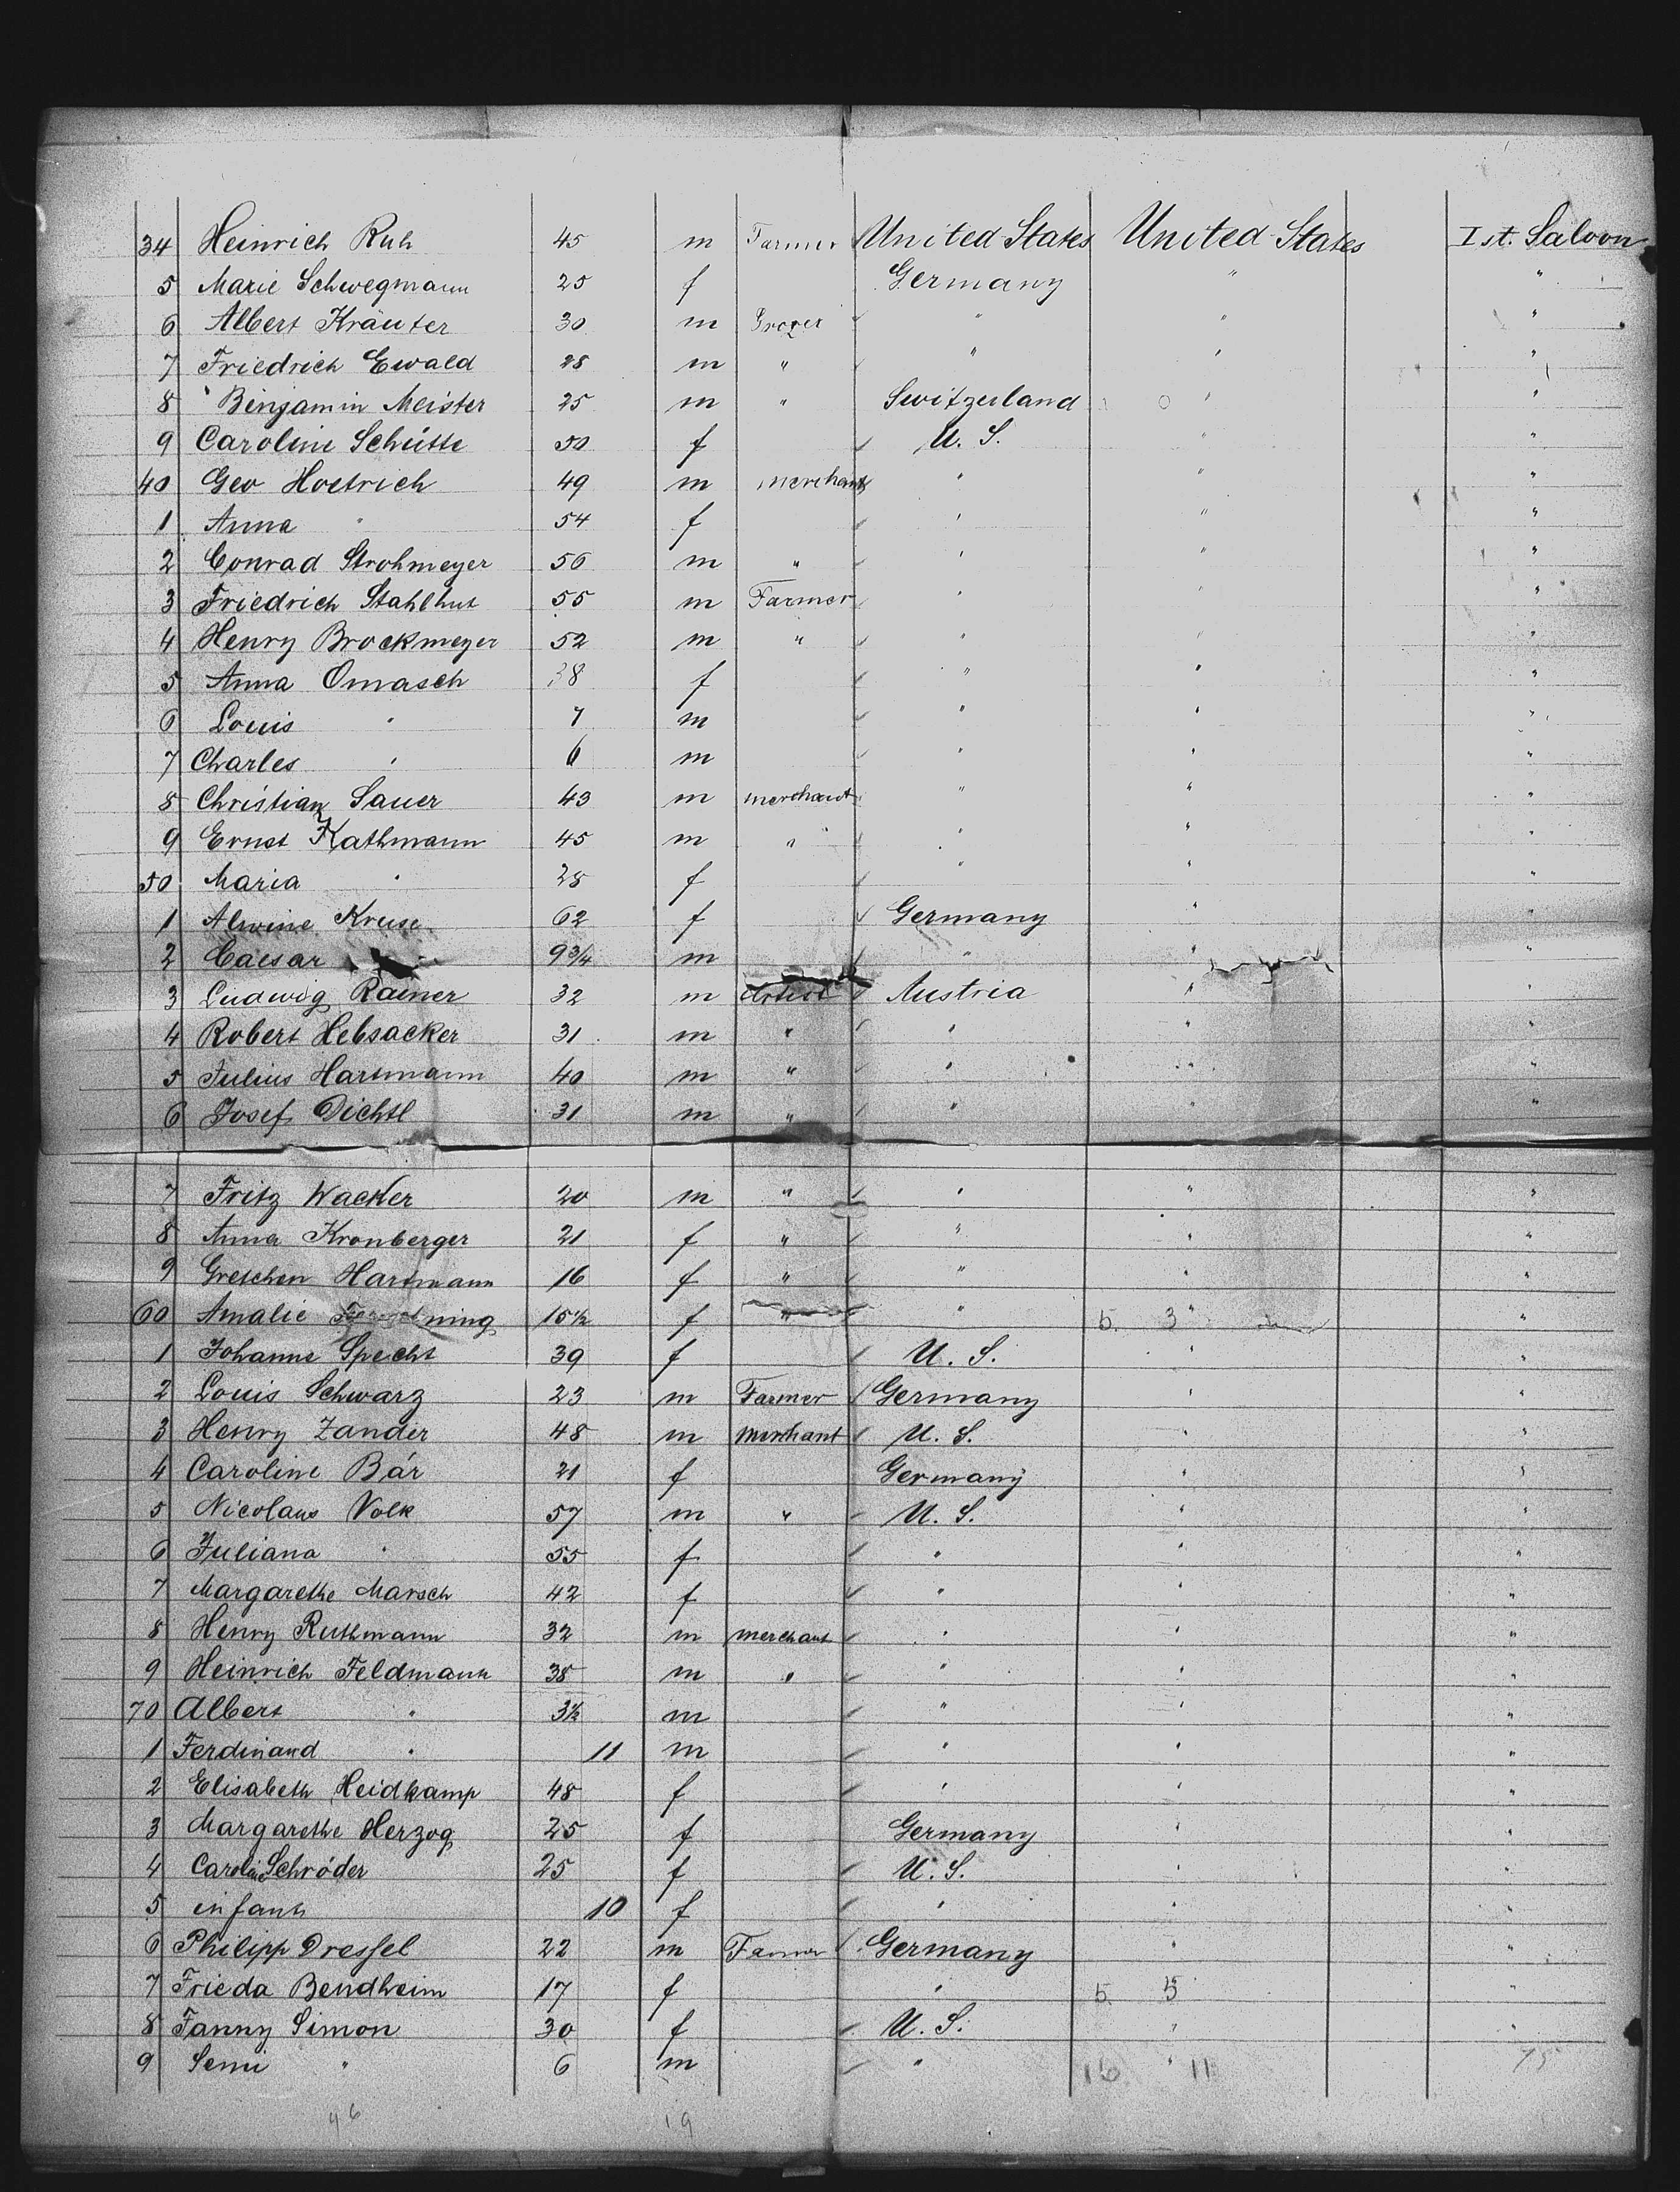 34 Heinrich Ruh 45 m Farmer United States United States Ist. Saloon
5 Marie Schwegmann 25 f Germany " "
6 Albert Kräuter 30 m Grocer " " "
7 Friedrich Ewald 28 m " " " "
8 Benjamin Meister 25 m " Switzerland " "
9 Caroline Schütte 50 f U. S. " "
40 Geo Hoetrich 49 m merchant " " "
1 Anna " 54 f " " "
2 Conrad Strohmeyer 56 m " " " "
3 Friedrich Stahlhut 55 m Farmer " " "
4 Henry Brockmeyer 52 m " " " "
5 Anna Omasch 38 f " " "
6 Louis " 7 m " " "
7 Charles " 6 m " " "
8 Christian Sauer 43 m merchant " " "
9 Ernst Kathmann 45 m " " " "
50 Maria " 28 f " " "
1 Alwine Kruse 62 f Germany " "
2 Caesar 9 3/4 m " " "
3 Ludwig Rainer 32 m Artist Austria " "
4 Robert Hebsacker 31 m " " " "
5 Julius Hartmann 40 m " " " "
6 Josef Dichtl 31 m " " " "
7 Fritz Wacker 20 m " " " "
8 Anna Kronberger 21 f " " " "
9 Gretchen Hartmann 16 f " " " "
60 Amalie 15 1/2 f " " 5. 3 " "
1 Johanne Specht 39 f U. S. " "
2 Louis Schwarz 23 m Farmer Germany " "
3 Henry Zander 48 m merchant U. S. " "
4 Caroline Bär 21 f Germany " "
5 Nicolaus Volk 57 m " U. S. " "
6 Juliana " 55 f " " "
7 Margarethe Marsch 42 f " " "
8 Henry Ruthmann 32 m merchant " " "
9 Heinrich Feldmann 38 m " " " "
70 Albert " 3 1/2 m " " "
1 Ferdinand " 11 m " " "
2 Elisabeth Heidkamp 48 f " " "
3 Margarethe Herzog 25 f Germany " "
4 Caroline Schröder 25 f U. S. " "
5 infant 10 f " " "
6 Philipp Dressel 22 m Farmer Germany " "
7 Frieda Bendheim 17 f " 5. 5 " "
8 Fanny Simon 30 f U. S. " "
9 Semi " 6 m " 16 " 11 75
46 19